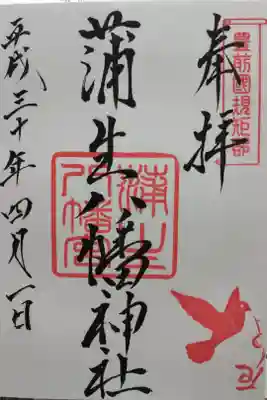 奉拝
豊前國規矩郡
蒲生八幡神社
蒲生八幡宮
平成三十年四月一日